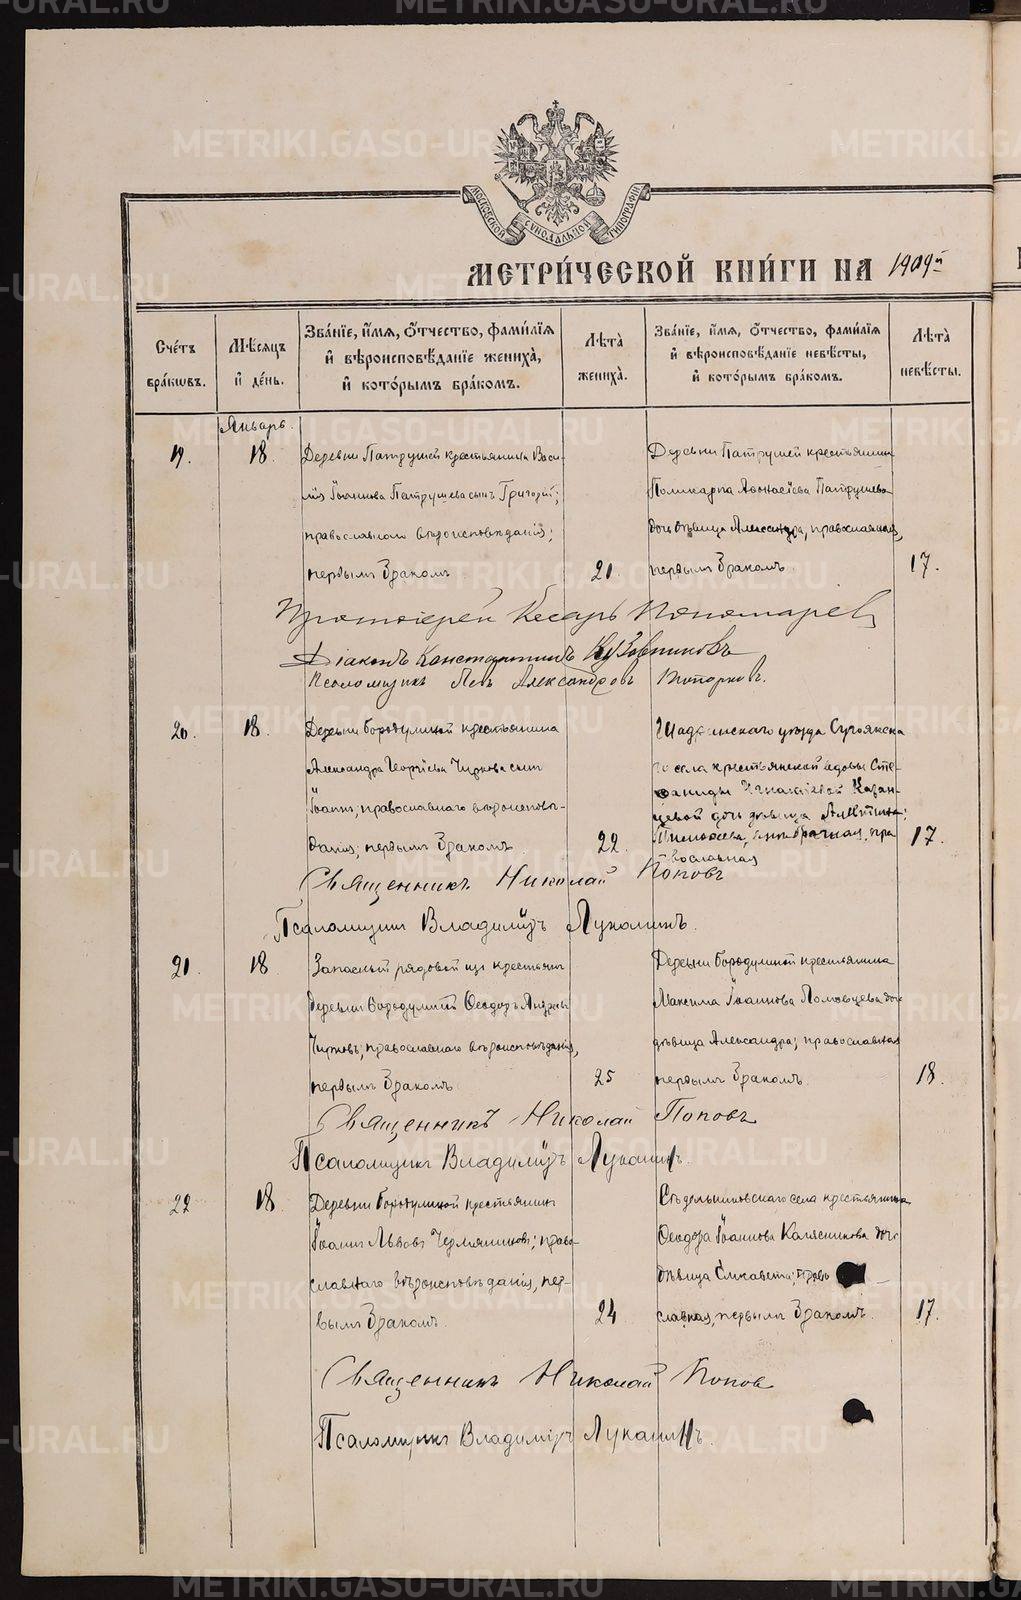 МОСКОВСКОЙ СѴНОДАЛЬНОЙ ТИПОГРАФІИ
МЕТРИ́ЧЕСКОЙ КНИ́ГИ НА 1909й
Сче́тъ бра́кωвъ.
Мѣ́сяцъ и҆ де́нь.
Зва́нїе, и҆́мя, ѻ҆́тчество, фами́лїя и҆ вѣроисповѣ́данїе жениха̀, и҆ кото́рымъ бра́комъ.
Лѣта̀ жениха̀.
Зва́нїе, и҆́мя, ѻ҆́тчество, фами́лїя и҆ вѣроисповѣ́данїе невѣ́сты, и҆ кото́рымъ бра́комъ.
Лѣта̀ невѣ́сты.
Январь.
19.
18
Деревни Патрушей крестьянина Васи-
лія Іоаннова Патрушева сынъ Григорій;
православнаго вѣроисповѣданія;
первымъ бракомъ
21.
Деревни Патрушей крестьянина
Поликарпа Патрушева
дочь дѣвица Александра, православная,
первымъ бракомъ
17.
Протоіерей Кесарь Пономарев
Діаконъ Константинъ
Псаломщикъ Левъ Александровъ Топорковъ.
20.
18.
Деревни Бородулиной крестьянина
Александра Георгіева Чиркова сынъ
Іоаннъ, православнаго вѣроисповѣ-
данія; первымъ бракомъ
22.
Шадринскаго уѣзда Сугоякска
го села крестьянской вдовы Сте-
фаниды Казан-
цевой дочь дѣвица
пра
вославная
17.
Священникъ Николай Поповъ
Псаломщикъ Владиміръ Луканинъ.
21.
18
Запасный рядовой изъ крестьянъ
деревни Бородулиной Ѳеодоръ
Чирковъ; православнаго вѣроисповѣданія,
первымъ бракомъ
25
Деревни Бородулиной крестьянина
Максима Іоаннова Половцева дочь
дѣвица Александра; православная
первымъ бракомъ.
18.
Священникъ Николай Поповъ
Псаломщикъ Владиміръ Луканинъ.
22
18.
Деревни Бородулиной крестьянинъ
Іоаннъ Львовъ право-
славнаго вѣроисповѣданія, пер-
вымъ бракомъ.
24
Сѣдельниковскаго села крестьянина
Ѳеодора Іоаннова Калясникова дочь
дѣвица Елисавета; право
славная, первымъ бракомъ.
17.
Священникъ Николай Попов
Псаломщикъ Владиміръ Луканинъ.
METRIKI.GASO-URAL.RU